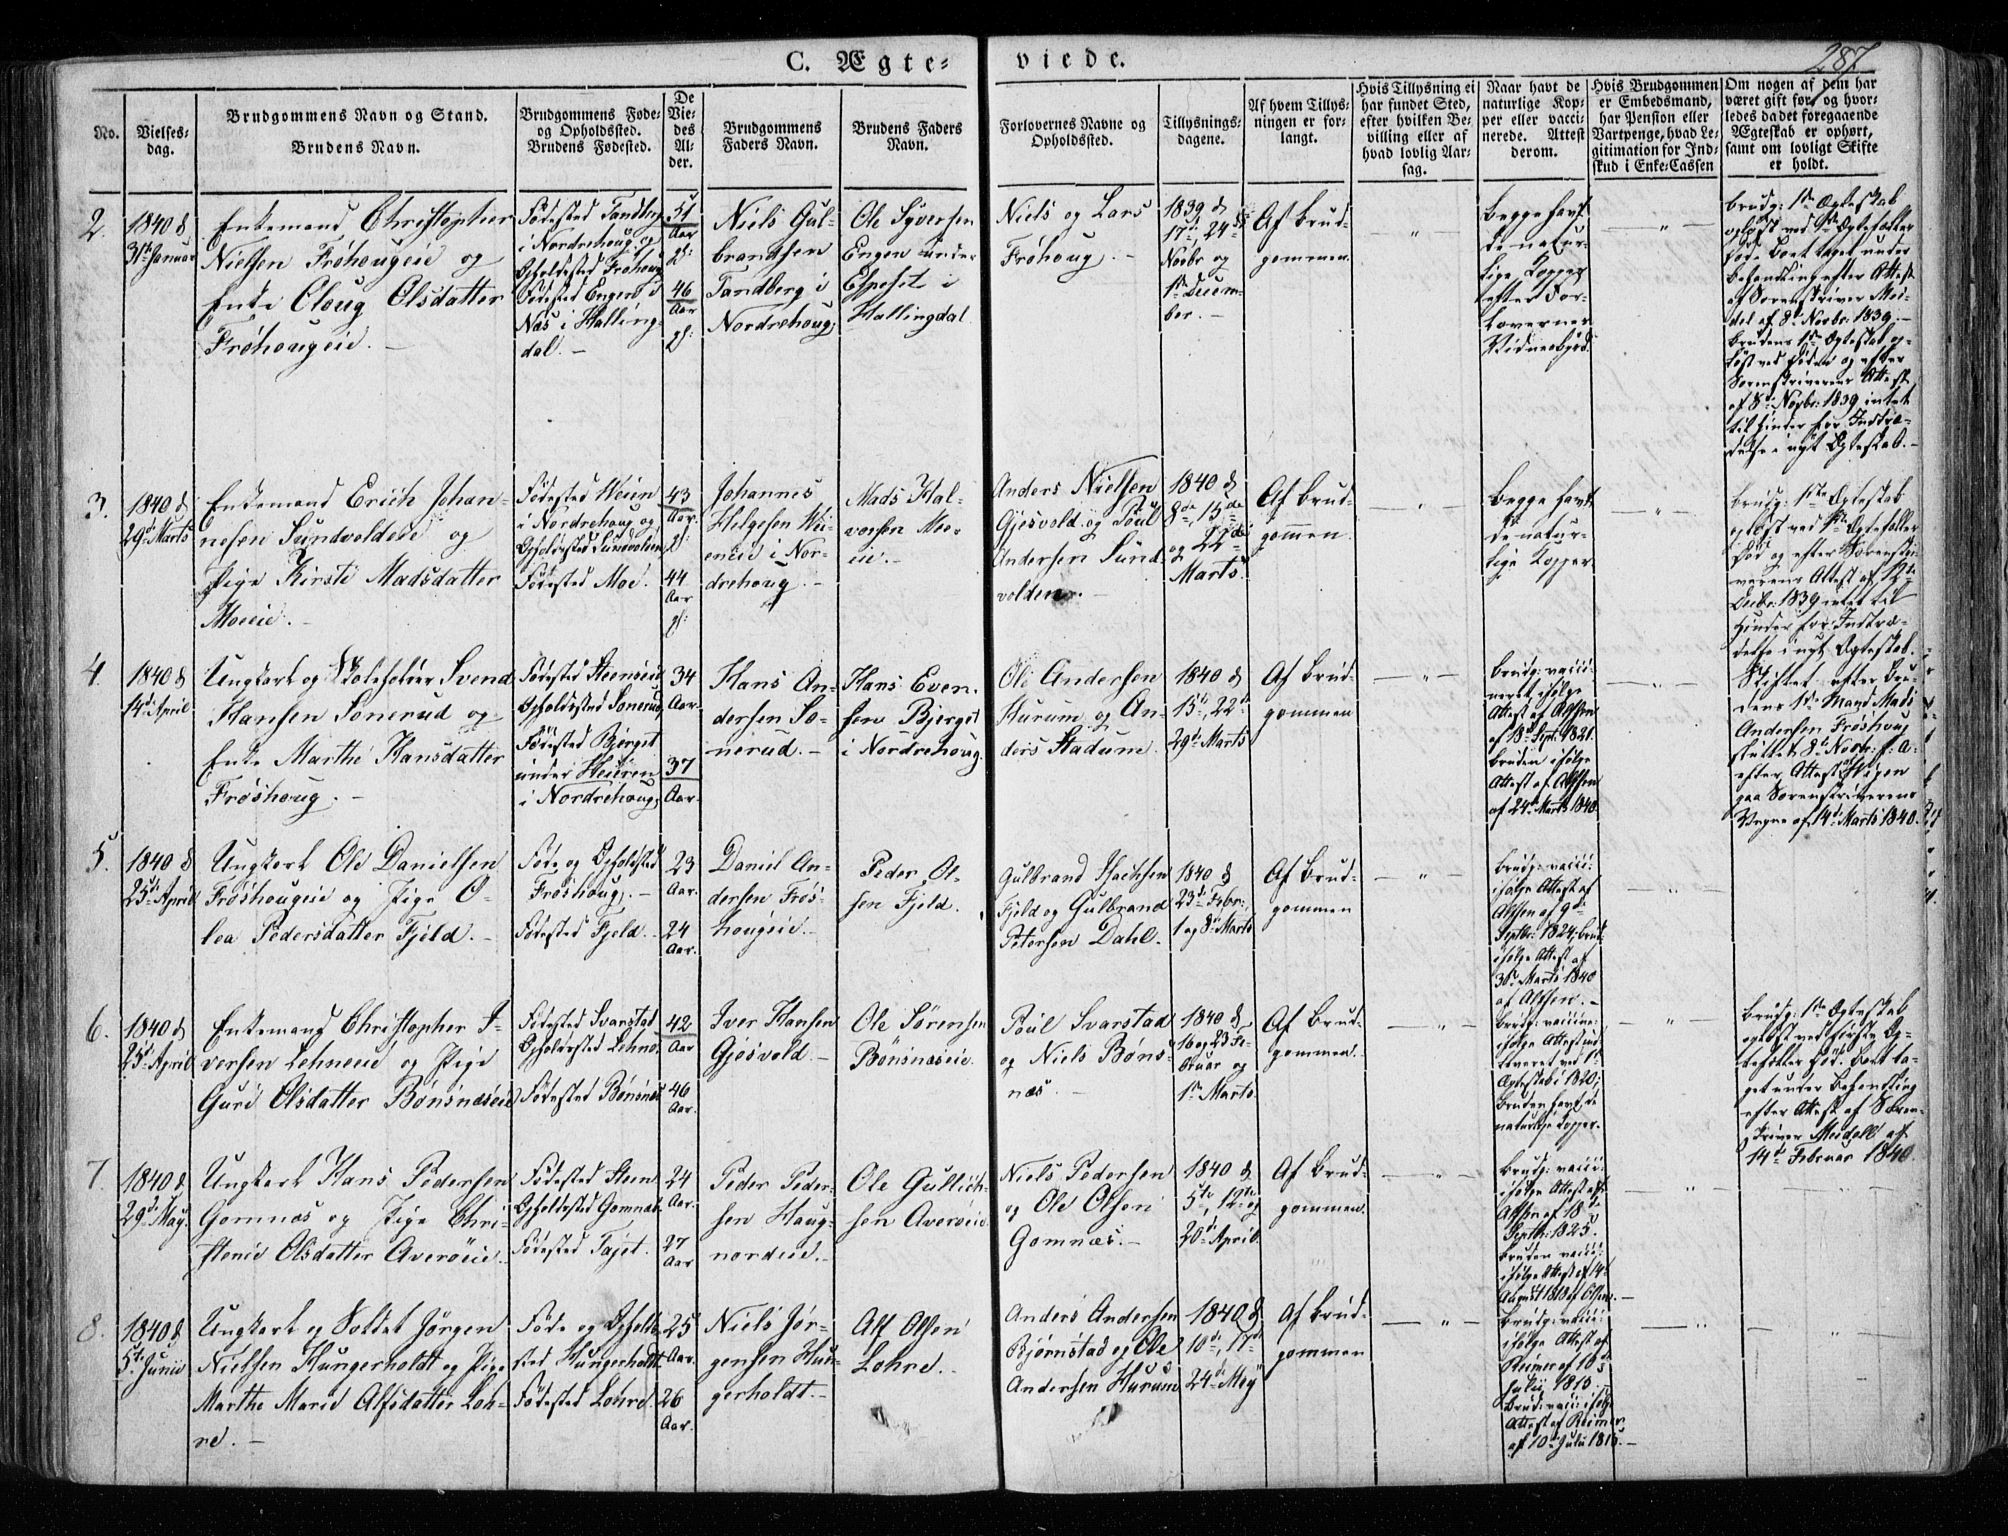 287
C. Ægte-viede.
No.
Vielses-
dag.
Brudgommens Navn og Stand.
Brudens Navn.
Brudgommens Føde-
og Opholdssted.
Brudens Fødested.
De
Vie-
des
Al-
der.
Brudgommens
Faders Navn.
Brudens Faders
Navn.
Forlovernes Navne og
Opholdssted.
Tillysnings-
dagene.
Af hvem Tillys-
ningen er for-
langt.
Hvis Tillysning ei
har fundet Sted,
efter hvilken Be-
villing eller af
hvad lovlig Aar-
sag.
Naar havt de
naturlige Kop-
per eller vacci-
nerede. Attest
derom.
Hvis Brudgommen
er Embedsmand,
har Pension eller
Vartpenge, hvad Le-
gitimation for Ind-
skud i Enke-Cassen
Om nogen af dem har
været gift før, og hvor-
ledes da det foregaaende
Ægteskab er ophørt,
samt om lovligt Skifte
er holdt.
2.
1840 d
31te Januar
Enkemand Christopher
Nielsen Frøhougeie og
Enke Oloug Olsdatter
Frøhougeie.
Fødested Tandberg
i Nordrehoug og
Opholdssted Frøhoug
Fødested Engen i
Næs i Halling-
dal.
51
Aar
gl:
46
Aar
gl:
Niels Gul-
brandsen
Tandberg i
Nordrehoug;
Ole Syversen
Engen under
Espeset i
Hallingdal
Niels og Lars
Frøhoug.
1839 d
17de 24de
Novbr og
1ste Decem-
ber.
Af Brud-
gommen
Begge havt
de natur-
lige Kopper
efter For-
lovernes
Vidnesbyrd.
Brudg: 1ste Ægteskab
opløst ved 1ste Ægtefælles
Død. Boet taget under
Behandling efter Attest
af Sorenskriver Mei-
del af 8de Novbr. 1839.
Brudens 1ste Ægteskab op-
løst ved Døden og efter
Sorenskriverens Attest
af 8de Novbr: 1839 intet
til Hinder for Indtræ-
delse i nyt Ægteskab.
3.
1840 d
29de Marts
Enkemand Erich Johan-
nesen Sundvoldeie og
Pige Kirsti Madsdatter
Moeeie.
Fødested Weien
i Nordrehoug og
Opholdssted Sundvolden,
Fødested Moe.
43
Aar
gl:
44
Aar
gl:
Johannes
Helgesen Wei-
eneie i Nor-
drehoug.
Mads Hal-
vorsen Moe-
eie.
Anders Nielsen
Gjesvold og Poul
Andersen Sund-
volden.
1840 d
8de, 15de
og 22de
Marts
Af Brud-
gommen.
Begge havt
de natur-
lige Kopper
Brudg: 1ste Ægteskab
opløst ved 1ste Ægtefælles
Død og efter Sorenskri-
verens Attest af 12te
Decbr: 1839 intet til
Hinder for Indtræ-
delse i nyt Ægteskab.
4.
1840 d
14de April
Ungkarl og Skoleholder Svend
Hansen Sonerud og
Enke Marthe Hansdatter
Frøshoug.
Fødested Steenseie
Opholdssted Sonerud,
Fødested Bjerget
under Weieren
i Nordrehoug;
34
Aar.
37
Aar.
Hans An-
dersen So-
nerud.
Hans Even-
sen Bjerget
i Nordrehoug.
Ole Andersen
Hurum og An-
ders Stadum.
1840 d
15de, 22de
29de Marts
Af Brud-
gommen
Brudg: vacci-
neret ifølge
Attest af Alssen
af 18de Sept: 1821.
Bruden ifølge
Attest af Alssen
af 24de Marts 1840.
Skiftet efter Bru-
dens 1ste Mand Mads
Andersen Frøshoug
sluttet 8de Novbr: f: A:
efter Attest
paa Sorenskriverens
Vegne af 14de Marts 1840.
5.
1840 d
25de April
Ungkarl Ole Danielsen
Frøshougeie og Pige O-
lea Pedersdatter Fjeld.
Føde og Opholdssted
Frøshoug.
Fødested Fjeld.
23
Aar.
24
Aar.
Daniel An-
dersen Frøs-
hougeie.
Peder Ol-
sen Fjeld.
Gulbrand Isachsen
Fjeld og Gulbrand
Petersen Dahl.
1840 d
23de Febr:,
1 og 8de Marts
Af Brud-
gommen
Brudg: vacci:
ifølge Attest af
Alssen af 9de
Septbr: 1824, Brud:
ifølge Attest af
30te Marts 1840
af Alssen.
6.
1840 d
25de April
Enkemand Christopher I-
versen Lehneeie og Pige
Guri Olsdatter Bønsnæseie
Fødested Svarstad
Opholdssted Lehne
Fødested Bønsnæs
42
Aar
46
Aar.
Iver Hansen
Gjesvold.
Ole Sørensen
Bønsnæseie.
Poul Svarstad
og Niels Bøns-
næs.
1840 d
16 og 23 Fe-
bruar og
1ste Marts
Af Brud-
gommen.
Brudg: vaccine:
ifølge Attest ind-
leveret ved 1ste
Ægteskab i 1820;
Bruden havt de
naturlige Kopper.
Brudg: 1ste Ægteskab
opløst ved første Æg-
tefælles Død. Boet ta-
get under Behandling
efter Attest af Soren-
skriver Meidell af
14de Februar 1840
7.
1840 d
29de May.
Ungkarl Hans Pedersen
Gomnæs og Pige Chri-
stenie Olsdatter Averøeie.
Fødested Steen
Opholdssted Gomnæs.
Fødested Fajet.
24
Aar.
27
Aar
Peder Peder-
sen Haug-
nordeie.
Ole Gullich-
sen Averøeie.
Niels Pedersen
og Ole Olsen
Gomnæs.
1840 d
5te, 12te og
20de April.
Af Brud-
gommen.
Brudg: vacci:
ifølge Attest af
Alssen af 18de
Septbr: 1825.
Bruden vacci:
ifølge Attest af 14de
August 1818 af Alssen.
8.
1840 d
5te Junii
Ungkarl og Soldat Jørgen
Nielsen Hungerholdt og Pige
Marthe Marie Alfsdatter Loh-
re.
Føde og Opholds-
sted Hungerholdt
Fødested Lohre.
25
Aar.
26
Aar.
Niels Jør-
gensen Hun-
gerholdt.
Alf Olsen
Lohre.
Anders Andersen
Bjørnstad og Ole
Andersen Hurum
1840 d
10de, 17de
24de May
Af Brud-
gommen
Brudg: vacci:
ifølge Attest af
Reimer af 16de
Julii 1815.
Brud: vacci: ifølge
Attest af Reimer
af 10de Julii 1816.